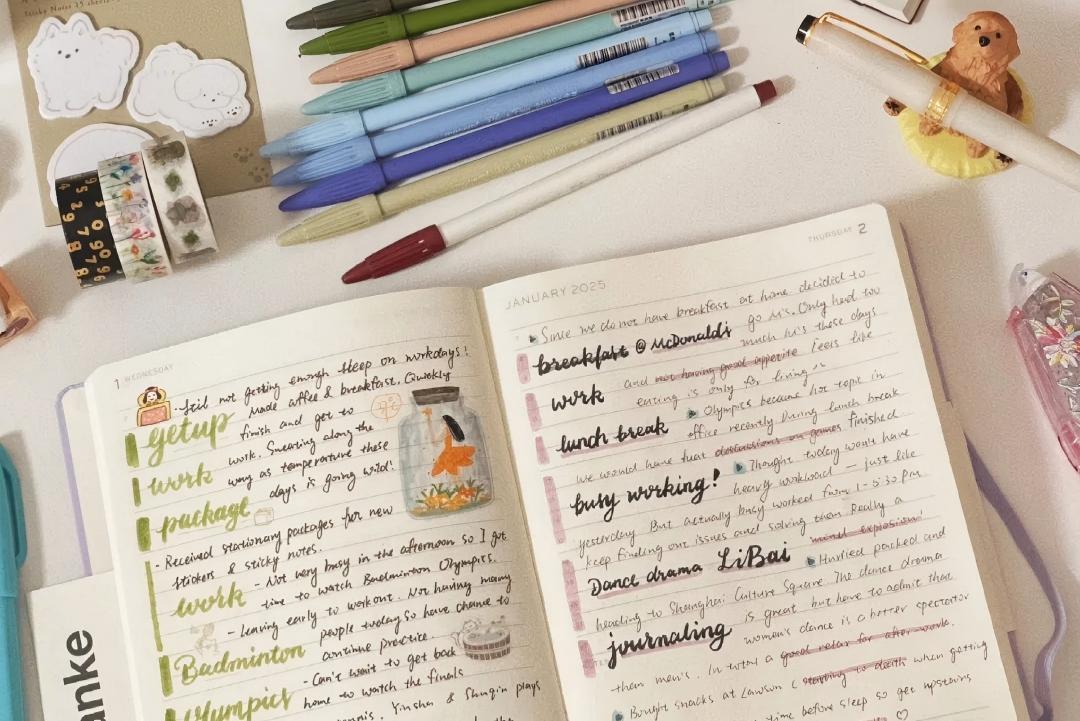 Sticky Notes
1 WEDNESDAY
Still not getting enough sleep on workdays!
getup
Made coffee & breakfast. Quickly
finish and get to
work
work. Sweating along the
way as temperature these
package
days is going wild!
- Received stationary packages for new
stickers & sticky notes.
work
- Not very busy in the afternoon so I got
time to watch Badminton Olympics.
- Leaving early to workout. Not having many
Badminton
people today so have chance to
continue practice.
Olympics
- Can't wait to get back
home to watch the finals
Yinsha & Shuqin plays
JANUARY 2025
THURSDAY 2
Since we do not have breakfast at home decided to
breakfast @ McDonald's
go M's. Only had too
much M's these days
work
and not having good appetite feels like
eating is only for living
lunch break
Olympics became hot topic in
office recently During lunch break
we would have that discussions on games finished
busy working!
Thought today won't have
heavy workload — just like
yesterday But actually busy worked from 1-5:30 PM
keep finding our issues and solving them Really a
mind explosion!
Dance drama LiBai
Hurried packed and
heading to Shanghai Culture Square. The dance drama
journaling
is great but have to admit that
women's dance is a better spectator
than men's. In total a good relax for after-work.
Bought snacks at Lawson (starving to death when getting
time before sleep so get upstairs
anke